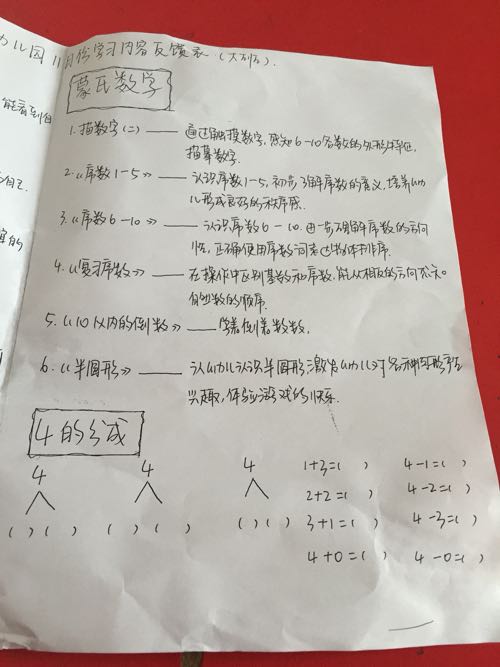 幼儿园11月份学习内容反馈表（大班）.
蒙氏数学
能看到自
1. 描数字(二) —— 通过触摸数字,感知6-10各数的外形特征,
描摹数字.
2.《序数1-5》—— 认识序数1-5,初步了解序数的意义,培养幼
儿形成良好的秩序感.
3.《序数6-10》—— 认识序数6-10.进一步理解序数的方向
性,正确使用序数词表达物体排序.
4.《复习序数》—— 在操作中区别基数和序数,能从相反的方向
自然数的顺序.
5.《10以内的倒数》—— 学着倒着数数.
6.《半圆形》—— 认幼儿认识半圆形激发幼儿对各种图形产生
兴趣,体验游戏的快乐.
4的分成
4 4 4
( ) ( ) ( ) ( ) ( ) ( )
1+3=( ) 4-1=( )
2+2=( ) 4-2=( )
3+1=( ) 4-3=( )
4+0=( ) 4-0=( )